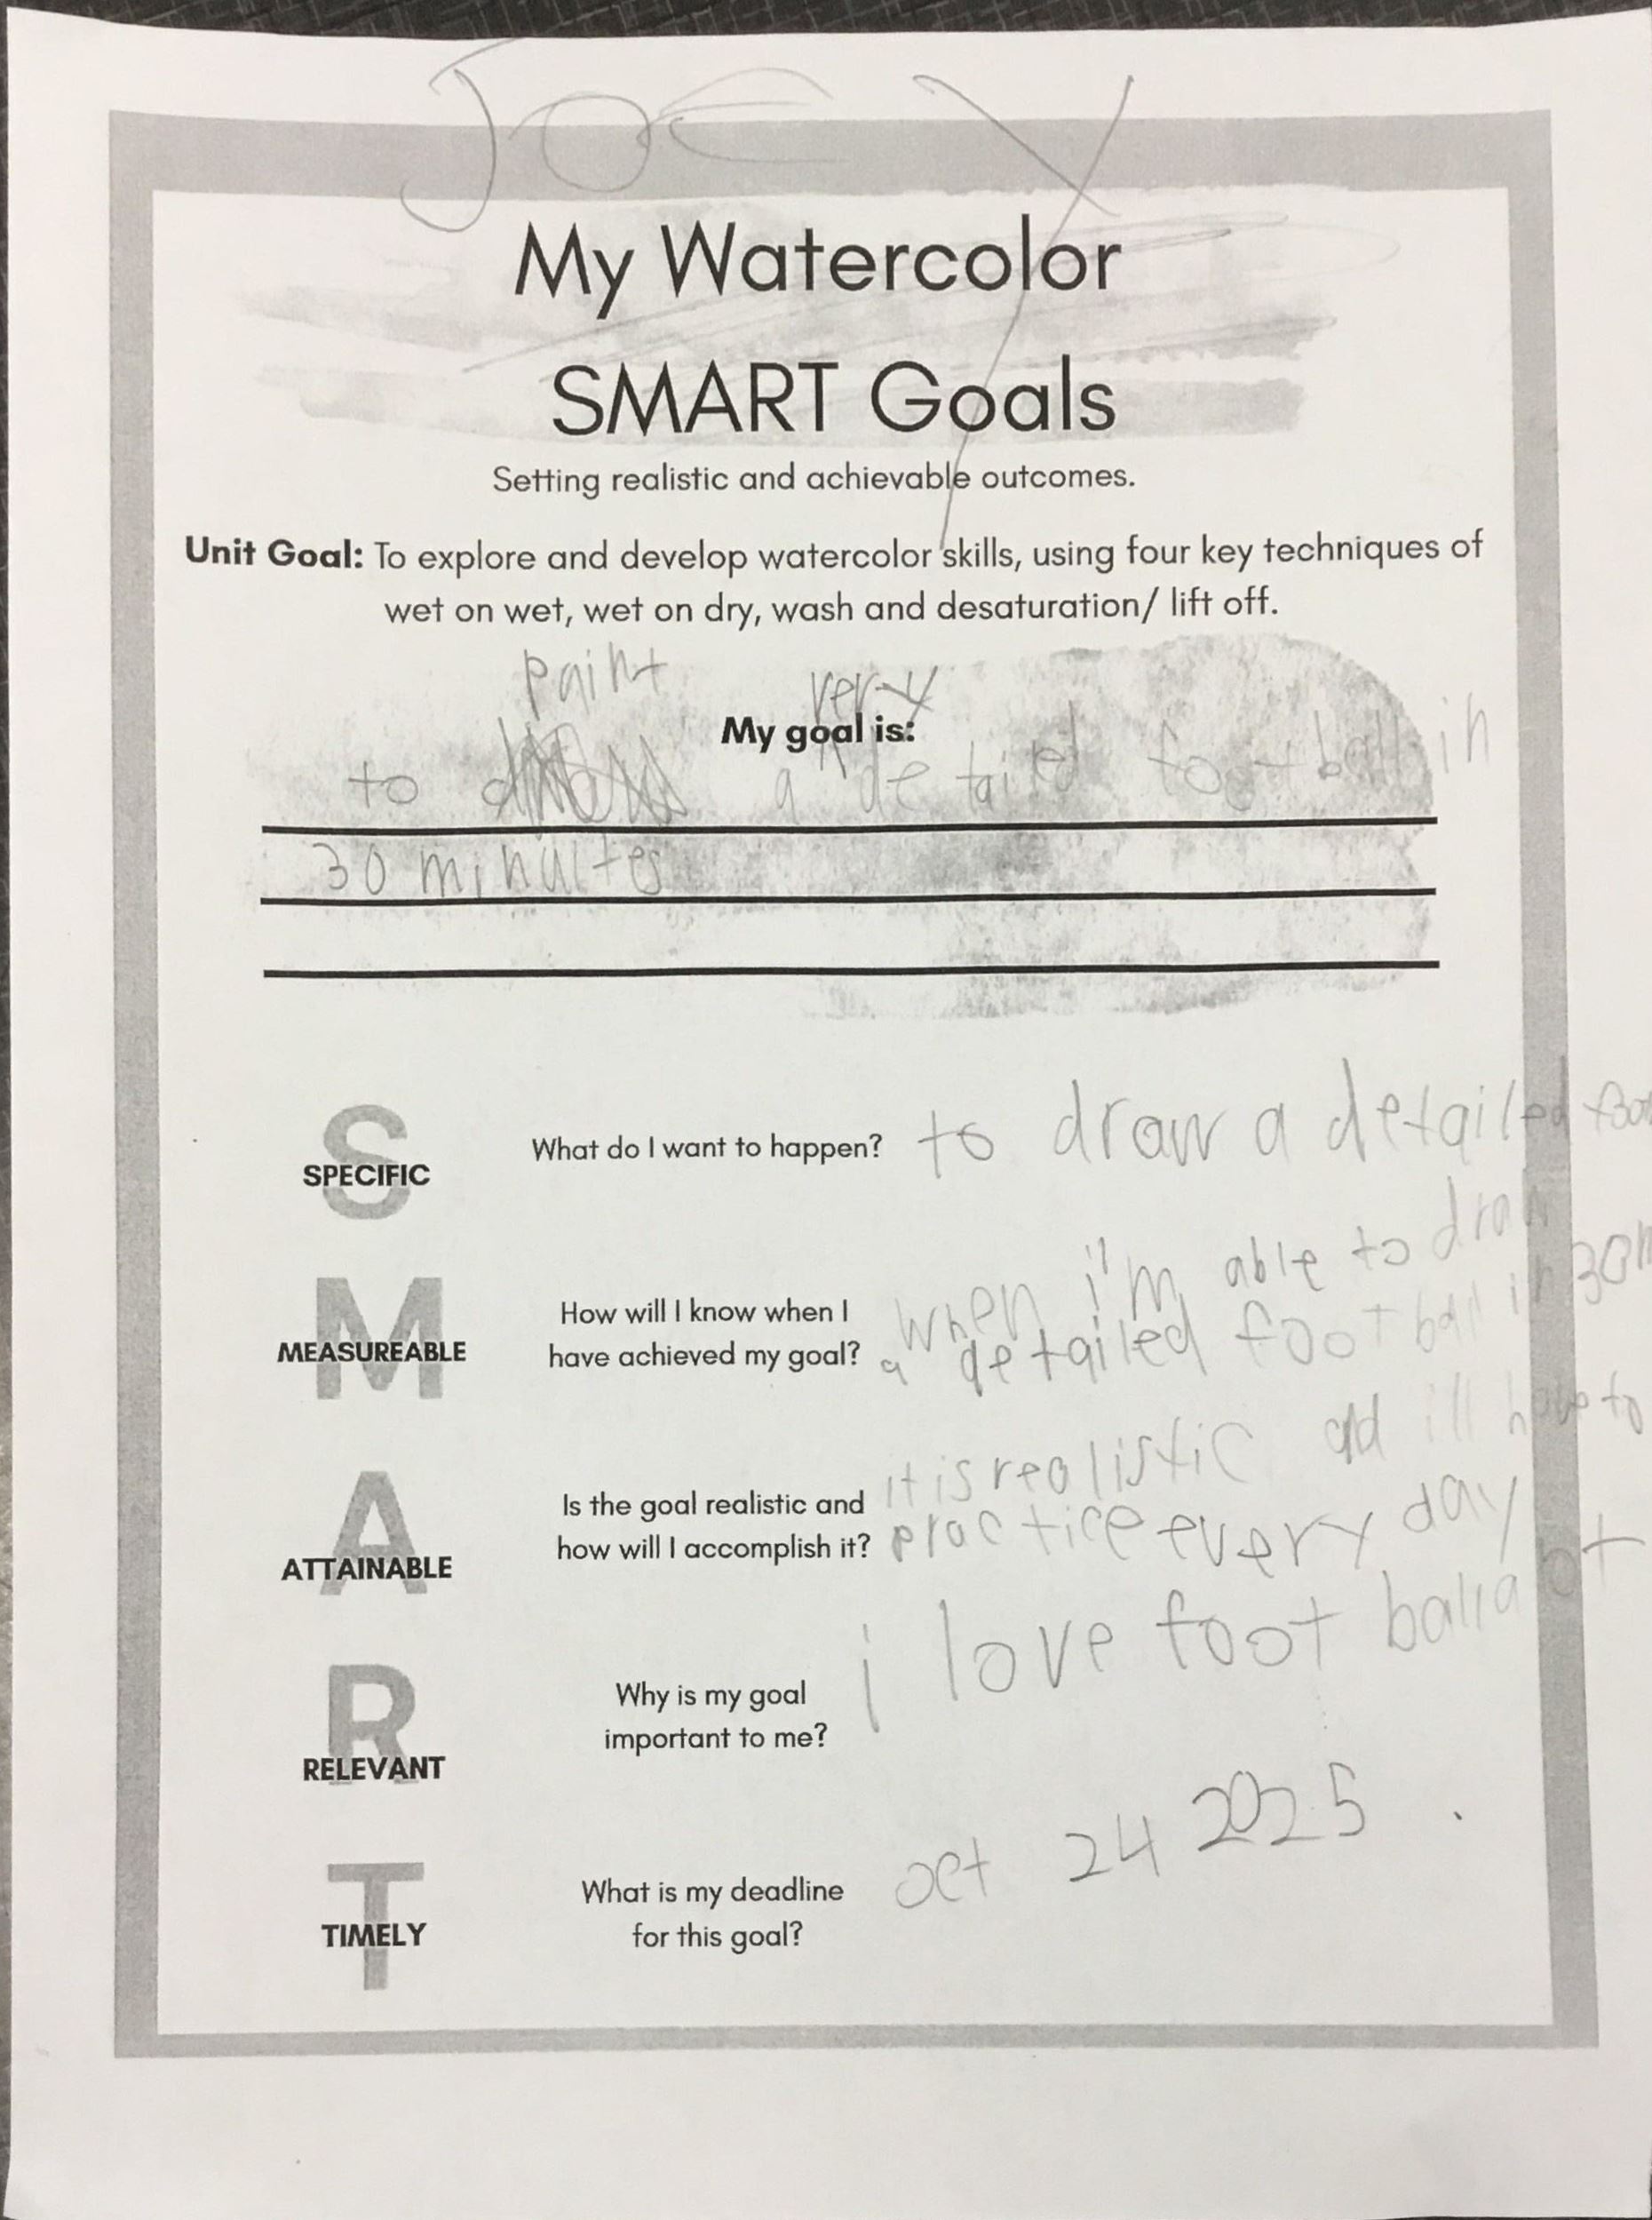 JOEY
My Watercolor
SMART Goals
Setting realistic and achievable outcomes.
Unit Goal: To explore and develop watercolor skills, using four key techniques of
wet on wet, wet on dry, wash and desaturation/ lift off.
paint very
My goal is:
to a detailed foot ball in
30 minutes
S
SPECIFIC
What do I want to happen?
to draw a detailed
M
MEASUREABLE
How will I know when I
have achieved my goal?
when i'm able to draw
a detailed foot ball in 30
A
ATTAINABLE
Is the goal realistic and
how will I accomplish it?
it is realistic ad ill have to
practice every day
R
RELEVANT
Why is my goal
important to me?
i love foot ball a ot
T
TIMELY
What is my deadline
for this goal?
oct 24 2025